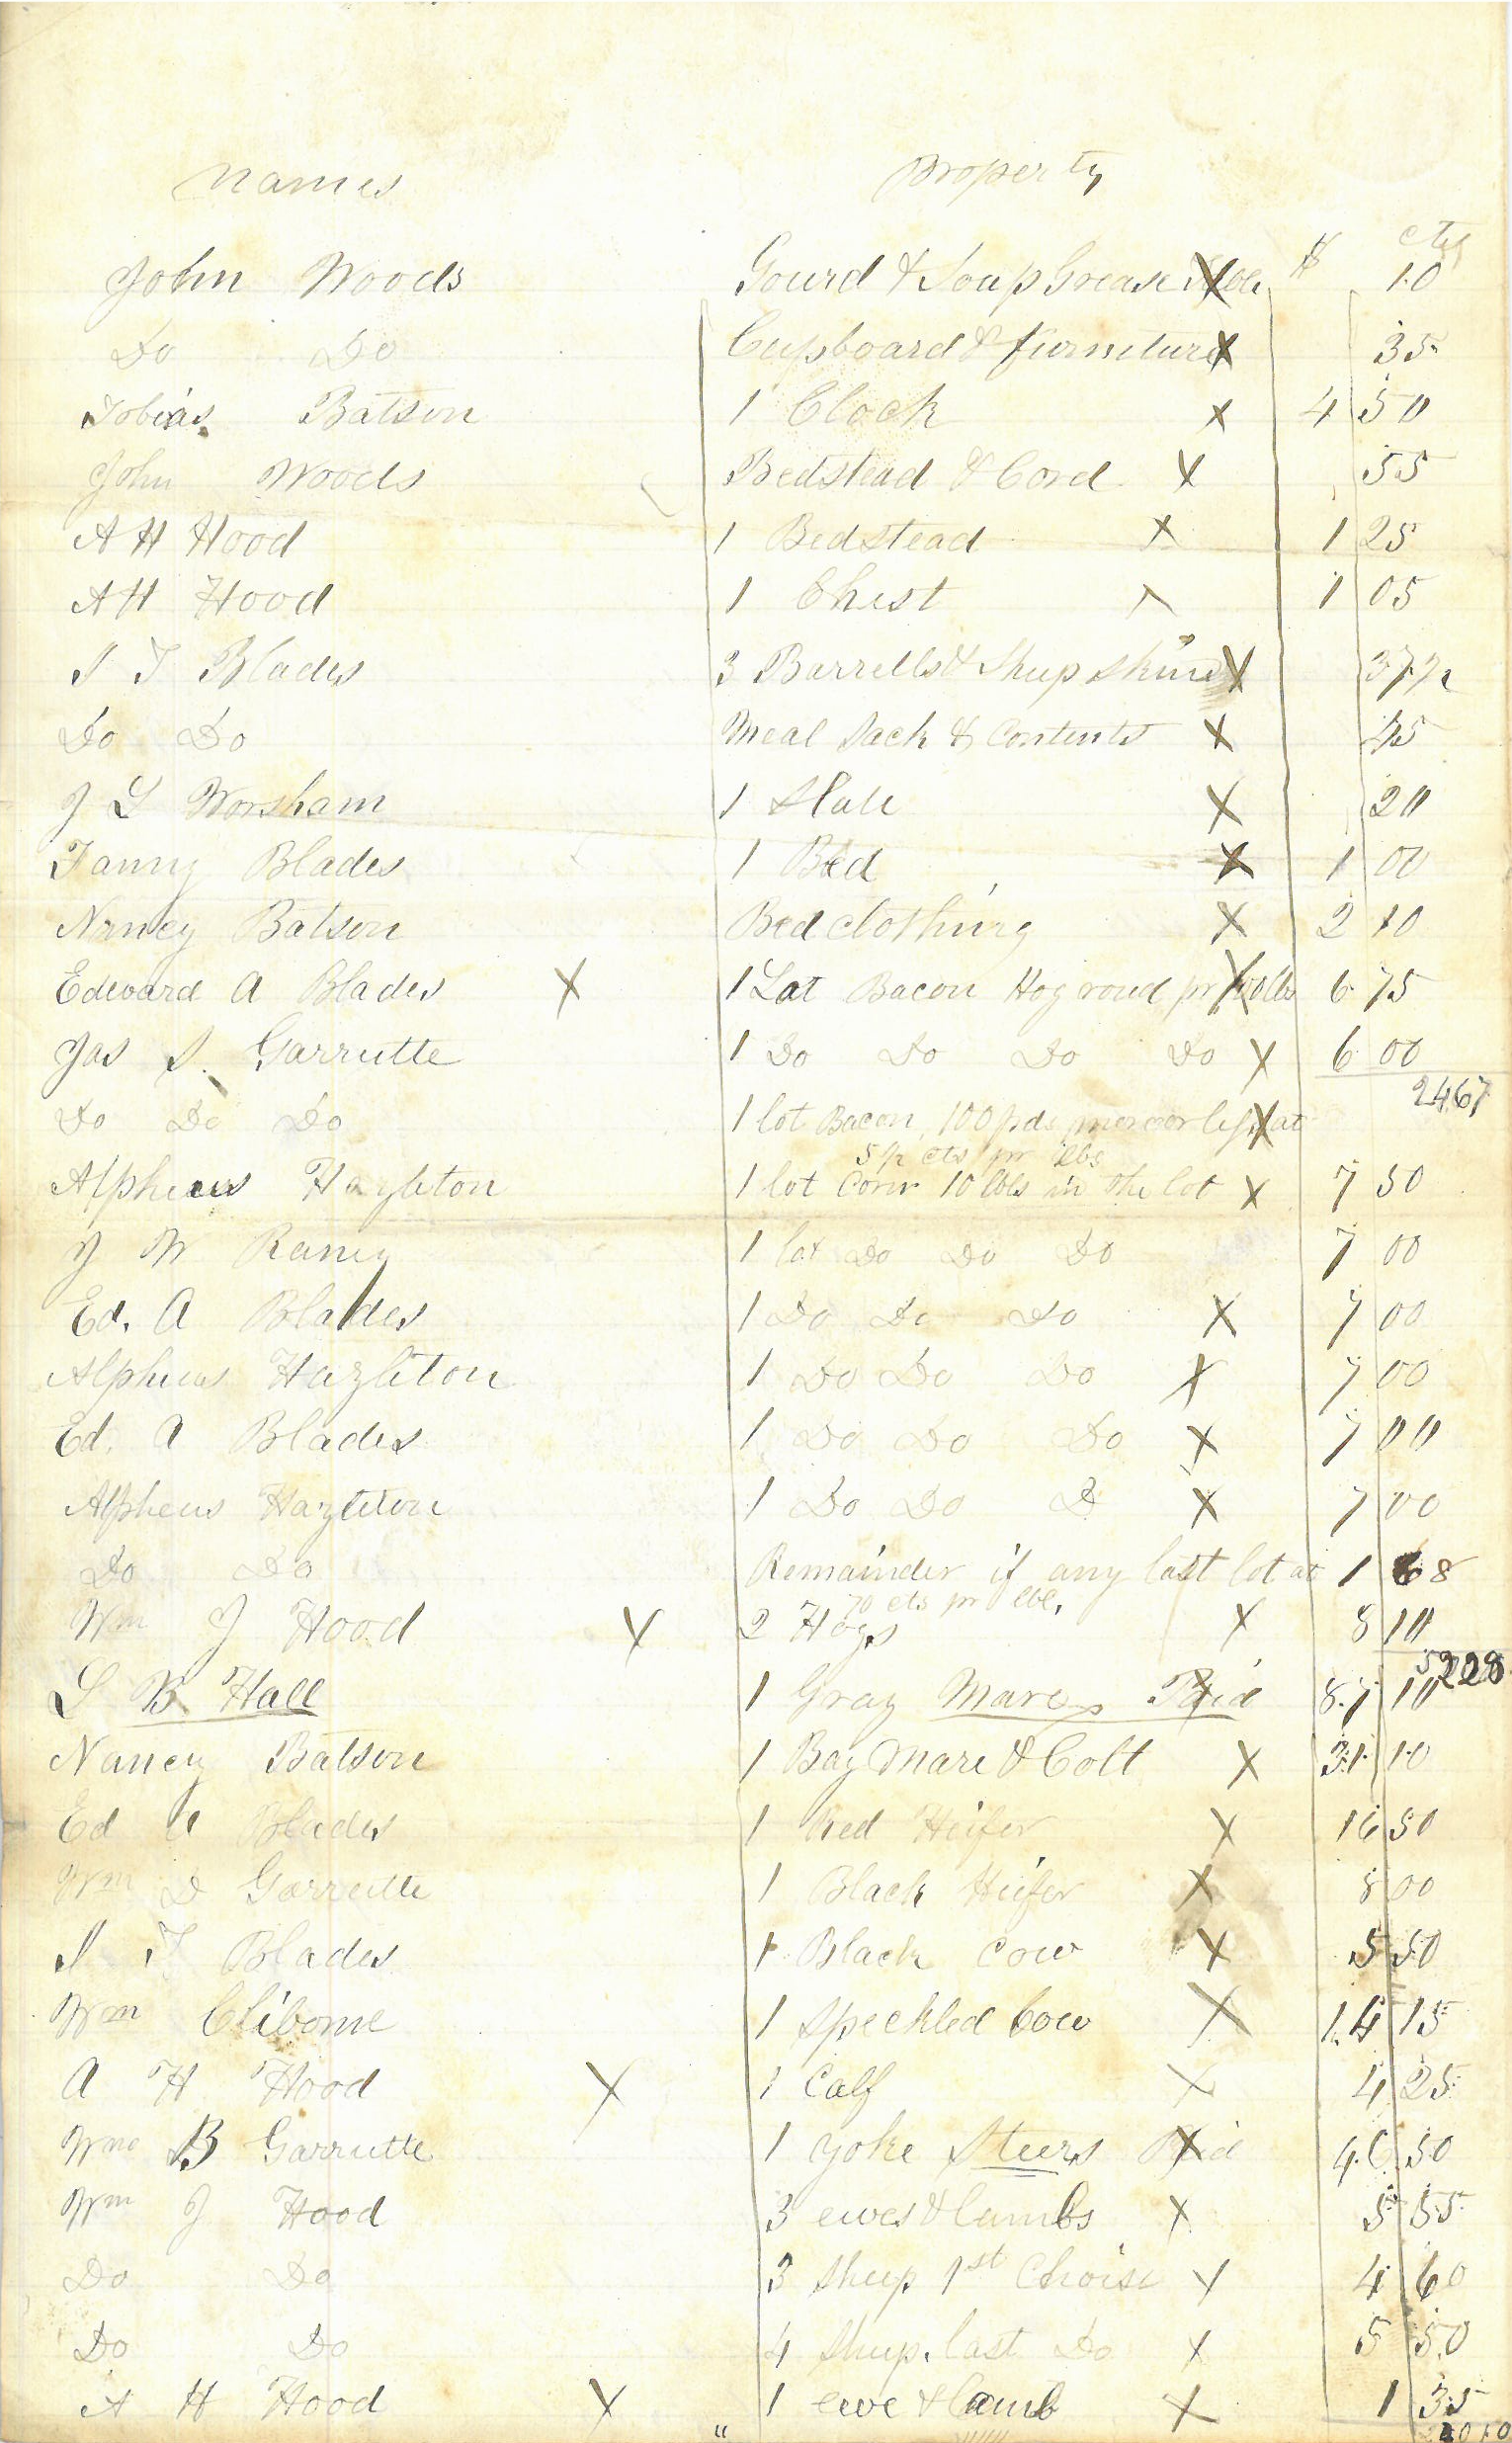 Names Property
$ cts
John Woods Gourd & Soap Grease X 10
Do Do Cupboard & furniture X 35
Tobias Batson 1 Clock X 4 50
John Woods Bedstead & Cord X 55
A H Hood 1 Bedstead X 1 25
A H Hood 1 Chest 1 05
S T Blades 3 Barrells & Sheep Skins X 37 1/2
Do Do Meal Sack & Contents X 45
J L Worsham 1 Slate X 20
Fanny Blades 1 Bed X 1 00
Nancy Batson Bed clothing X 2 10
Edward A Blades X 1 Lot Bacon Hog round pr 100 lbs 6 75
Jas S. Garrutte 1 Do Do Do Do X 6 00
2467
Do Do Do 1 lot Bacon, 100 pds more or less at
5 1/2 cts pr lbs
Alpheus Hazleton 1 lot Corn 10 bbls in the lot X 7 50
J W Raney 1 lot Do Do Do 7 00
Ed. A Blades 1 Do Do Do X 7 00
Alpheus Hazleton 1 Do Do Do X 7 00
Ed. A Blades 1 Do Do Do X 7 00
Alpheus Hazleton 1 Do Do D X 7 00
Do Do Remainder if any last lot at 1 68
70 cts pr bbl.
Wm J Hood X 2 Hogs X 8 10
5228
L B Hall 1 Gray Mare Paid 87 10
Nancy Batson 1 Bay Mare & Colt X 31 10
Ed A Blades 1 Red Heifer X 16 50
Wm D Garrutte 1 Black Heifer X 8 00
S T Blades 1 Black Cow X 5 50
Wm Cliborne 1 Speckled Cow X 14 15
A H Hood X 1 Calf X 4 25
Wm B Garrutte 1 Yoke Steers Paid 46 50
Wm J Hood 3 ewes & lambs X 5 55
Do Do 3 Sheep 1st Choise X 4 60
Do Do 4 Sheep. last Do X 5 50
A H Hood X 1 ewe & lamb X 1 35